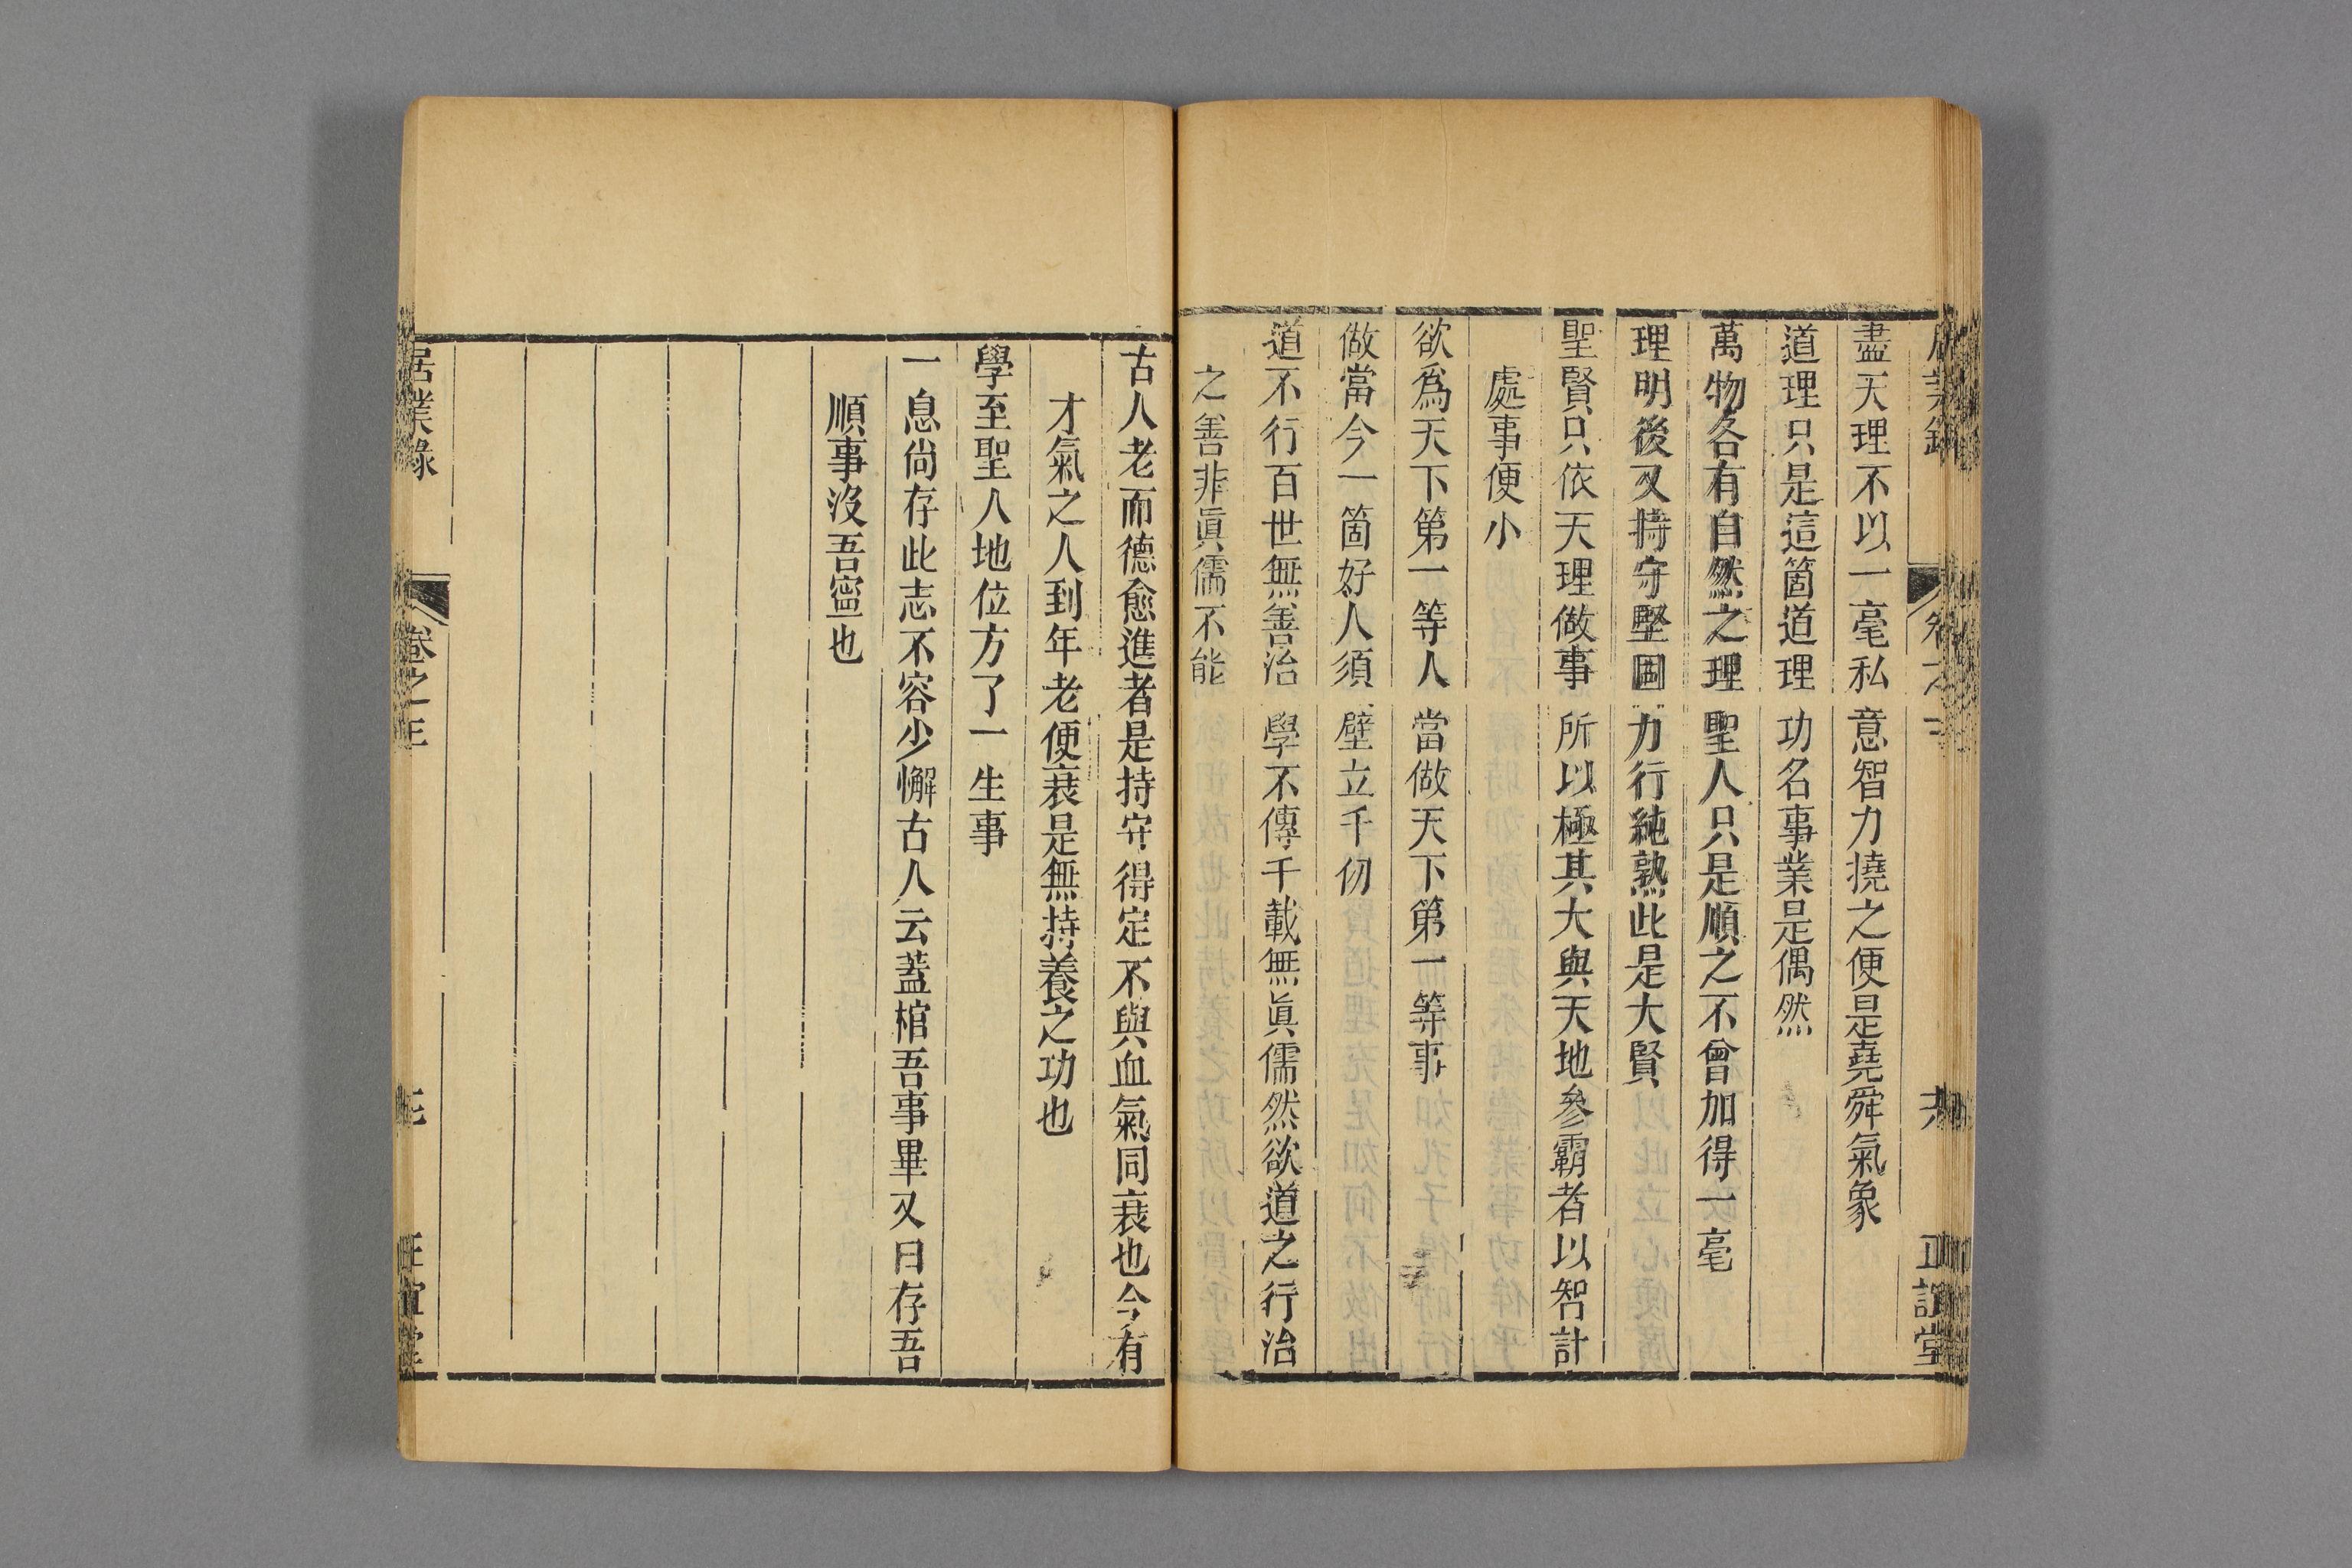 盡天理不以一毫私意智力撓之便是堯舜氣象
道理只是這箇道理功名事業是偶然
萬物各有自然之理聖人只是順之不曾加得一毫
理明後又持守堅固力行純熟此是大賢
聖賢只依天理做事所以極其大與天地參霸者以智計
處事便小
欲爲天下第一等人當做天下第一等事
做當今一箇好人須壁立千仞
道不行百世無善治學不傳千載無眞儒然欲道之行治
之善非眞儒不能
古人老而德愈進者是持守得定不與血氣同衰也今有
才氣之人到年老便衰是無持養之功也
學至聖人地位方了一生事
一息尚存此志不容少懈古人云蓋棺吾事畢又曰存吾
順事沒吾寧也
居業錄
卷之三